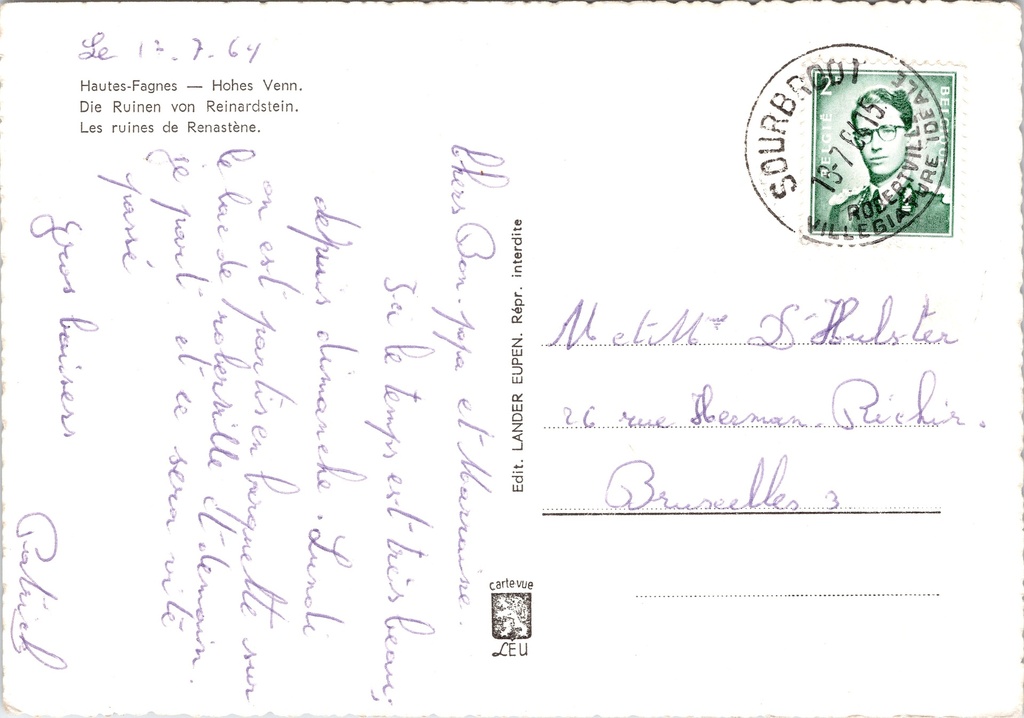 Le 17-7-64
Hautes-Fagnes — Hohes Venn.
Die Ruinen von Reinardstein.
Les ruines de Renastène.
Chers Bon-papa et Marraine.
Ici le temps est très beau,
depuis dimanche. Lundi
on est partis en barquette sur
le lac de robertville. Et demain
je part et ce sera vite
passé
Gros baisers
Patrick
Edit. LANDER EUPEN. Répr. interdite
carte vue
LÉU
SOURBRODT
18-7 64 15
ROBERTVILLE
VILLEGIATURE IDEALE
2F
BELGIË
M et Mme D'Hulster
26 rue Herman. Richir.
Bruxelles 3